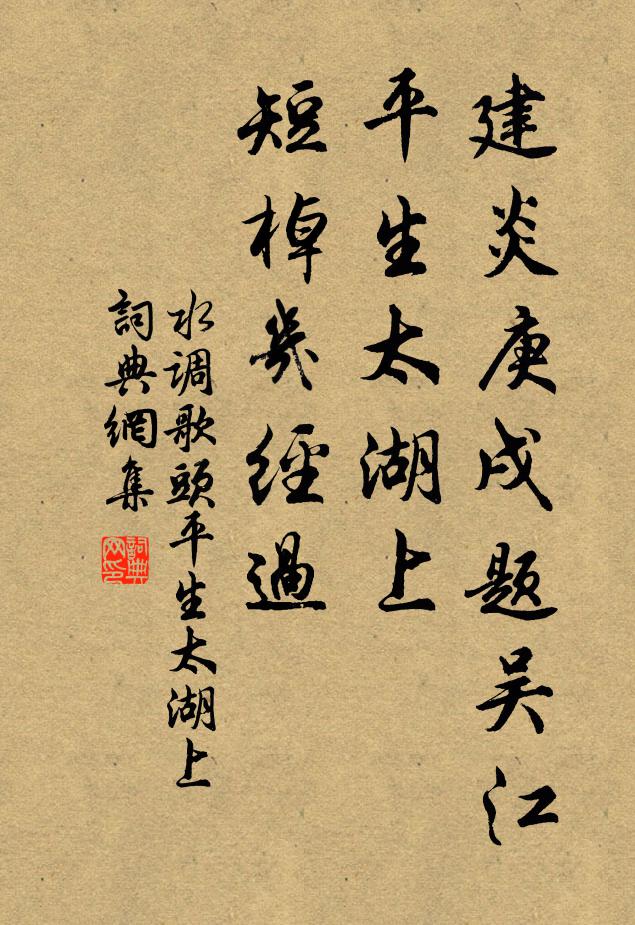 建炎庚戌题吴江
平生太湖上
短棹幾經過
水调歌頭平生太湖上
詞典網集
詞典网印